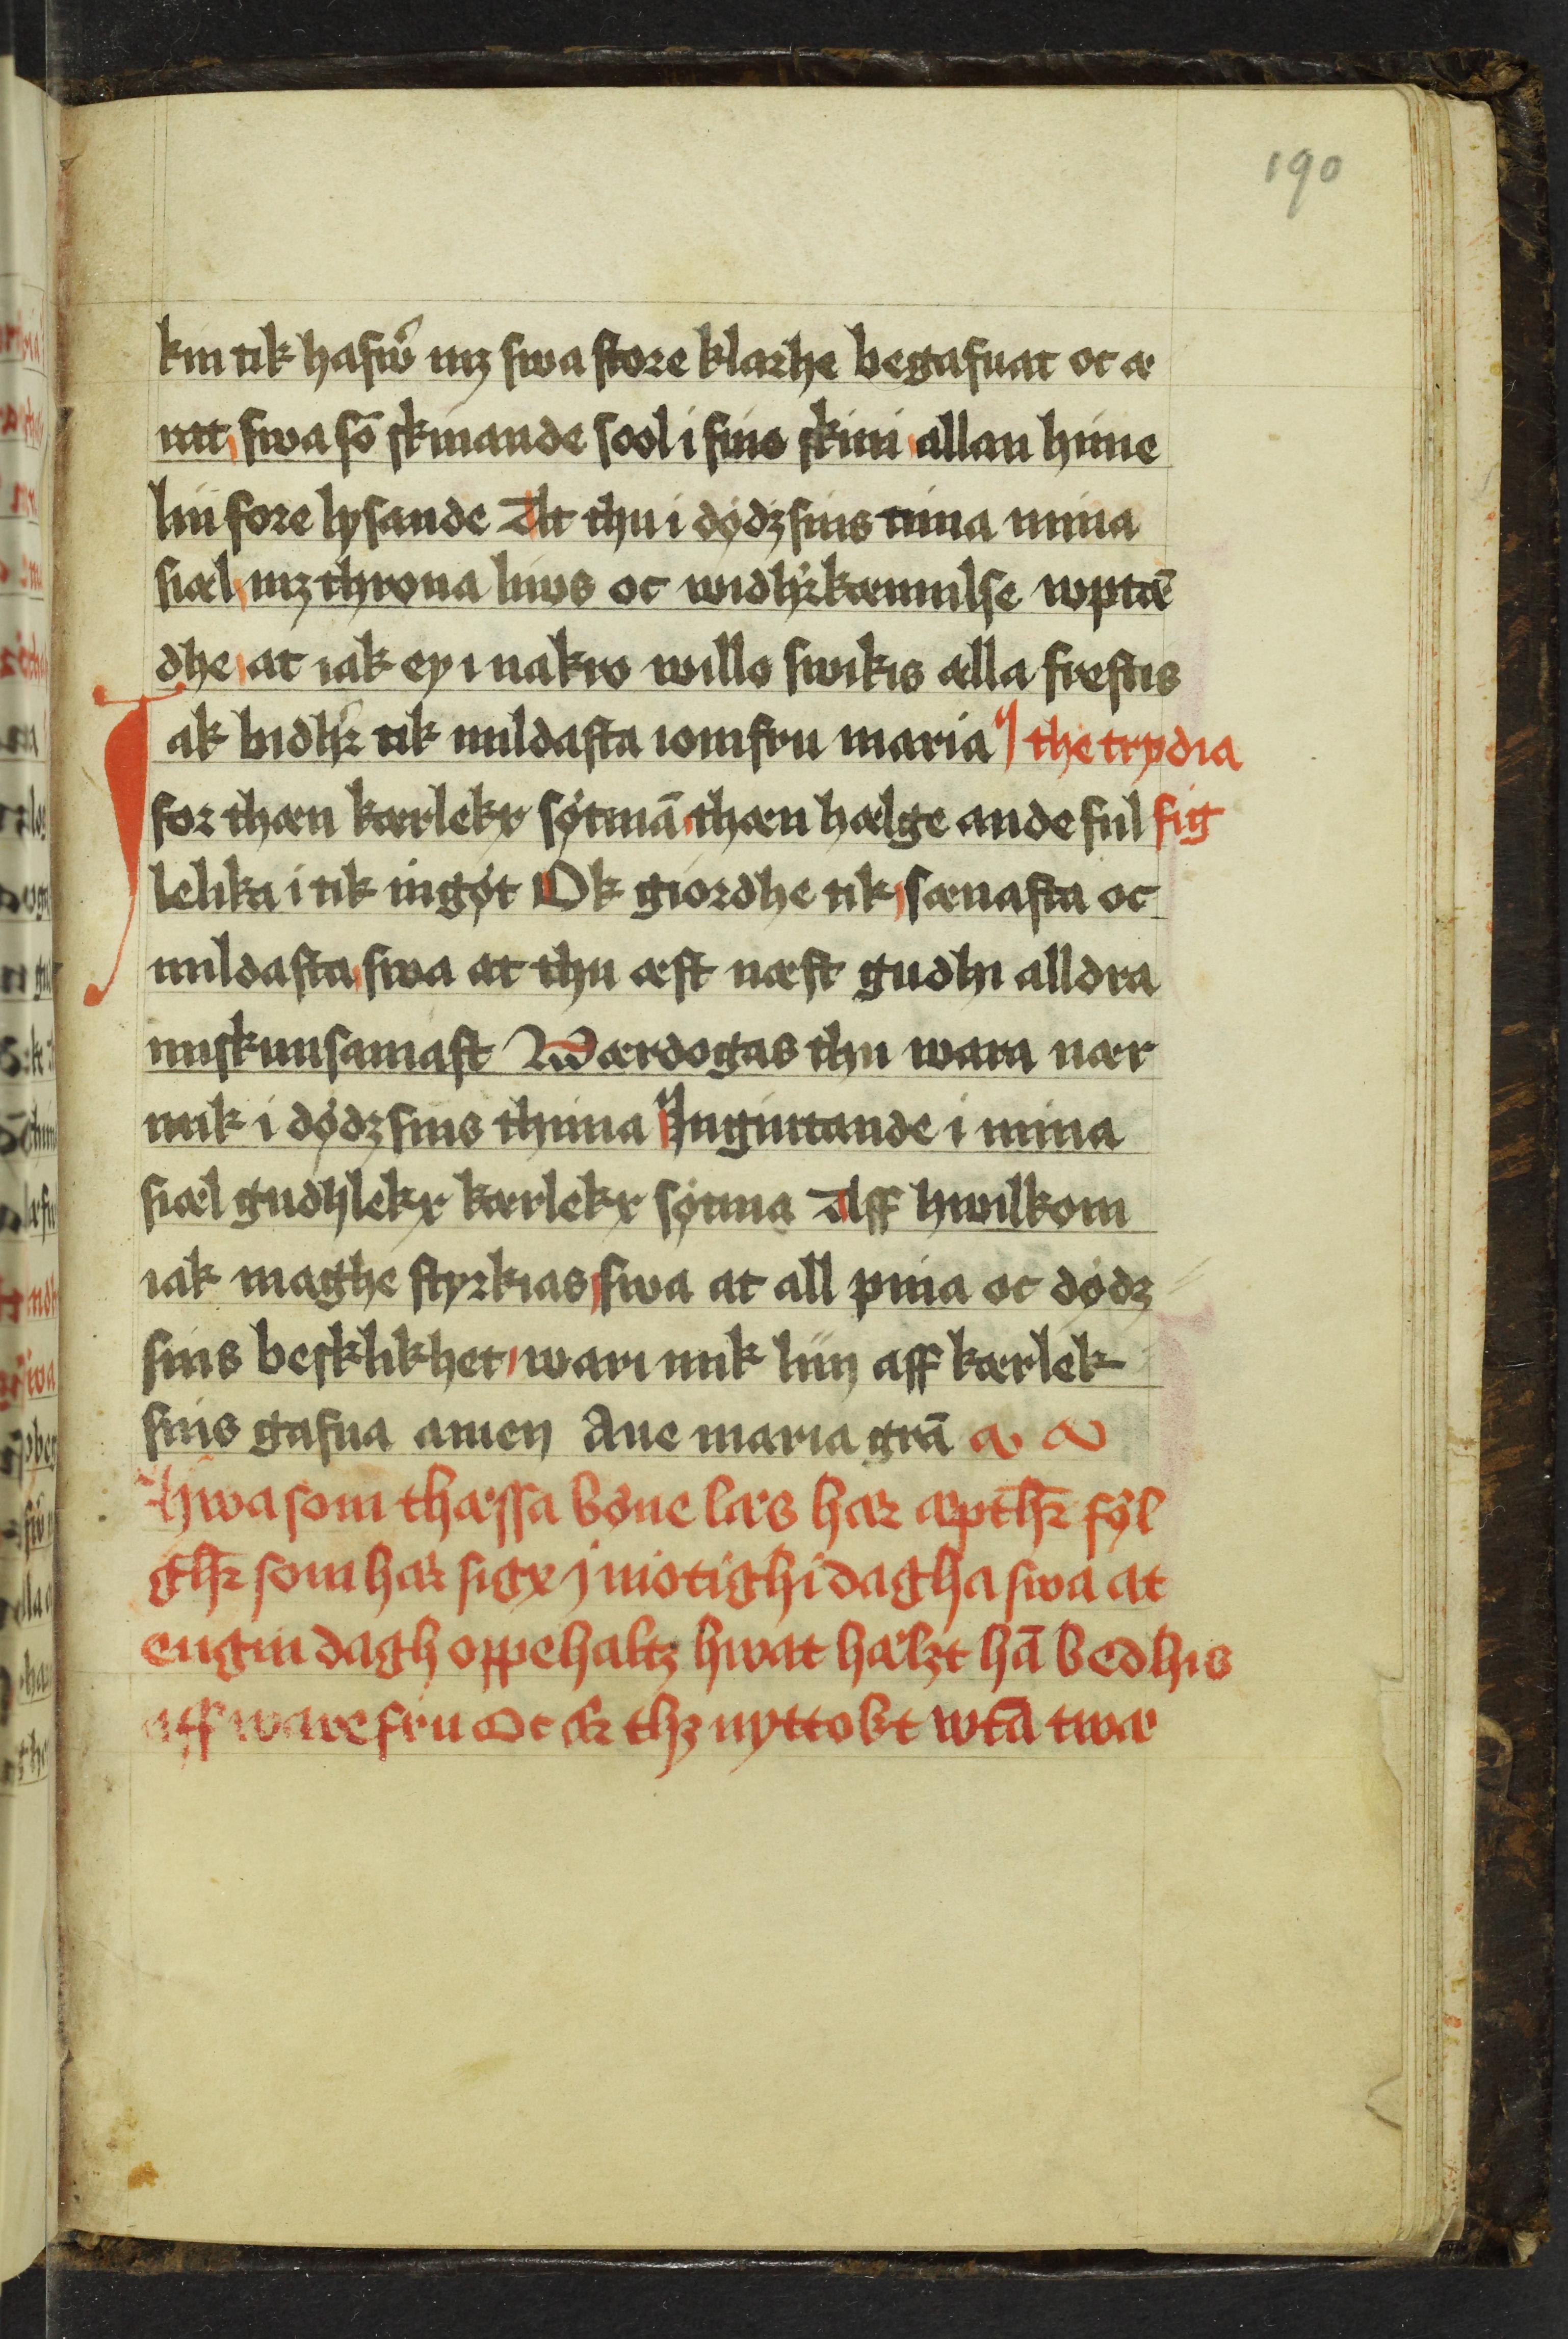 190
kin tik hafw̉ mz swa store klarhe begafuat oc æ
nit, swa sō skinande sool i sino skini, allan hime
lin fore lysande At thu i dödzsins tima mina
siæl, mz throna liws oc widhr̉kænnilse wptǣ
dhe, at iak ey i nakro willo swikis ælla frestis
Iak bidhr̉ tik mildasta iomfru maria the trydia
for thæn kærlekx sötmā, thæn hælge ande ful sig
lelika i tik ingöt Ok giordhe tik, sænasta oc
mildasta, swa at thu æst næst gudhi alldra
miskunsamast Wærdogas thu wara nær
mik i dödzsins thima Ingiutande i mina
siæl gudhlekx kærlekx sötma Aff hwilkom
iak maghe styrkias, swa at all pina oc dödz
sins besklikhet, wari mik liin aff kærlek
sins gafua amen Aue maria grā
Hwa som thæssa böne læs hær æpthr̄ föl
ghr̄ som hær sigx j niotighi dagha swa at
engin dagh oppehaltz hwat hælzt hā bedhis
aff ware fru Oc ær thz nyttokt wtā twæ